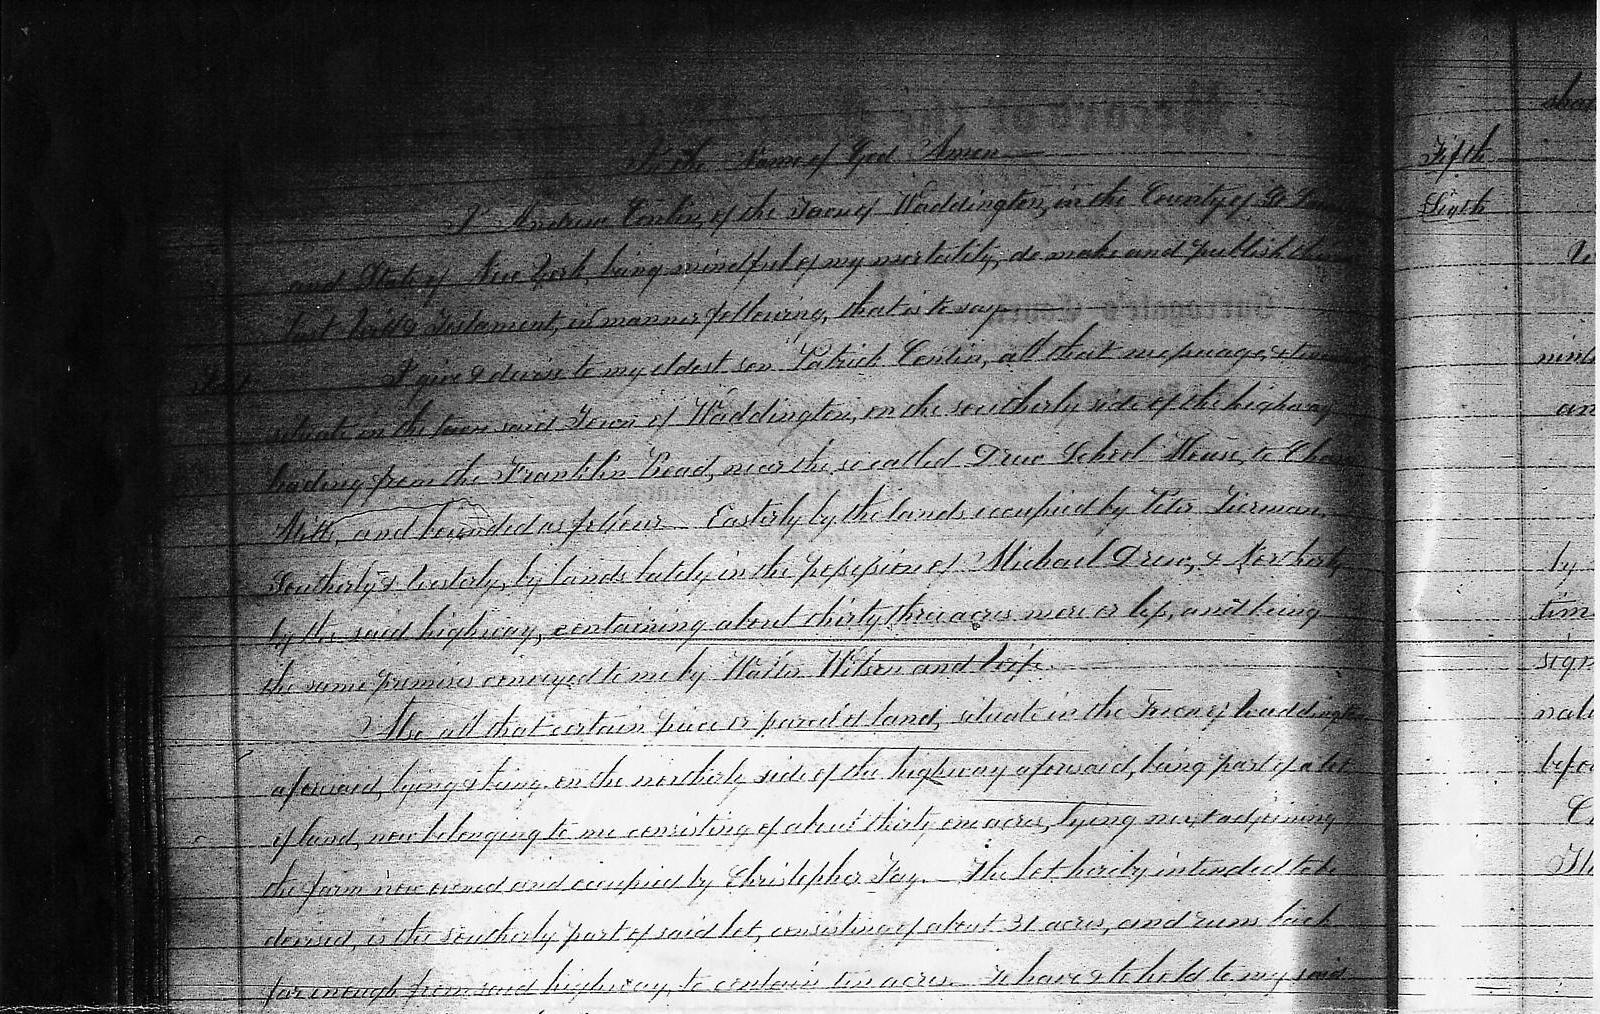 In the Name of God Amen
I Andrew Conlin, of the Town of Waddington, in the County of St
and State of New York, being mindful of my mortality, do make and publish
last Will & Testament, in manner following, that is to say
First I give & devise to my eldest son Patrick Conlin, all that messuage, &
situate in the town said Town of Waddington, on the southerly side of the highway
leading from the Franklin Road, near the so called Drew School House, to
Mills, and bounded as follows Easterly by the lands occupied by Peter Tierman,
Southerly & Westerly, by lands lately in the possession of Michael Drew, & Northerly
by the said highway, containing about thirty three acres more or less, and being
the same premises conveyed to me by Walter Wilson and wife.
Also all that certain piece or parcel of land, situate in the Town of Waddington
aforesaid, lying & being on the northerly side of the highway aforesaid, being part of a lot
of land, now belonging to me consisting of about thirty one acres, lying next adjoining
the farm now owned and occupied by Christopher Fay. — The lot hereby intended to be
devised, is the southerly part of said lot, consisting of about 31 acres, and runs back
far enough from said highway, to contain ten acres — To have & to hold to my said
Fifth
Sixth
by